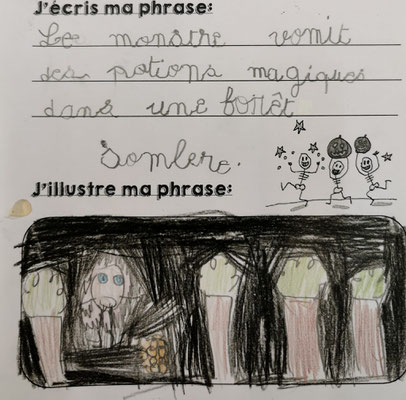 J'écris ma phrase:
Le monstre vomit
des potions magiques
dans une forrêt
sombre.
J'illustre ma phrase: